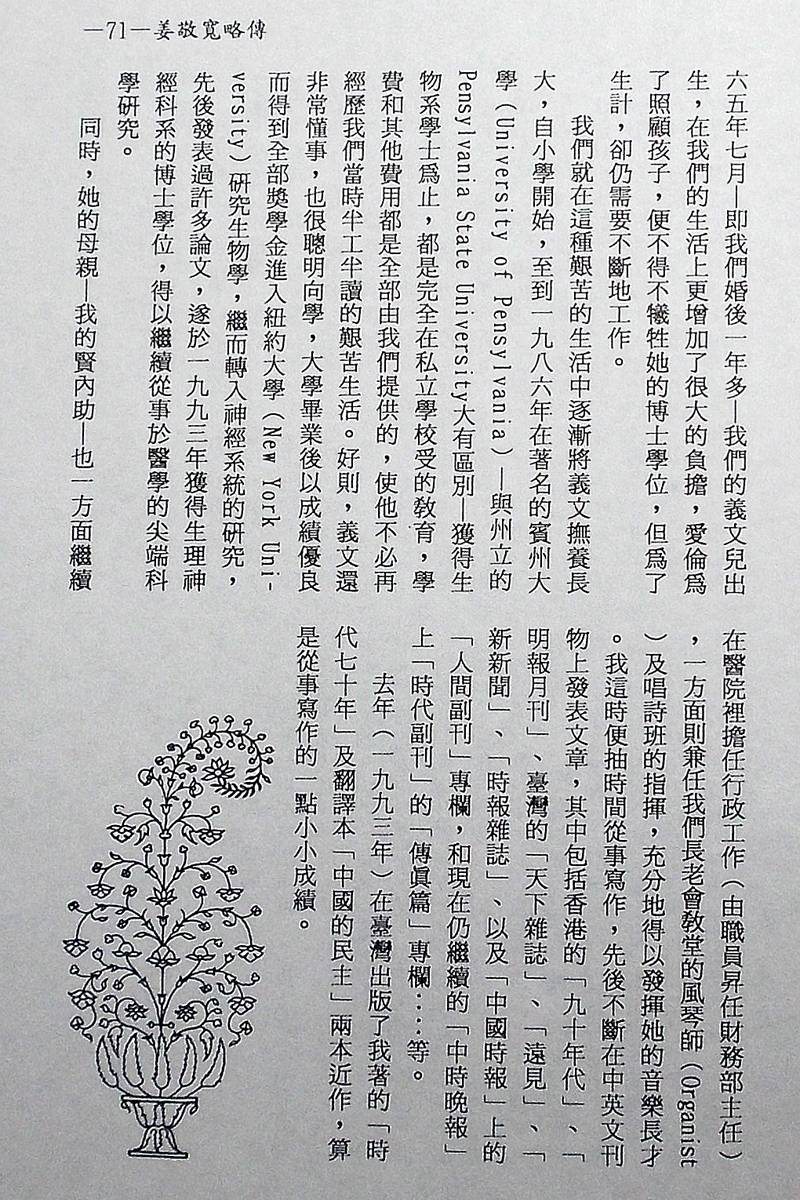 —71—姜敬寬略傳
六五年七月—即我們婚後一年多—我們的義文兒出
生，在我們的生活上更增加了很大的負擔，愛倫為
了照顧孩子，便不得不犧牲她的博士學位，但為了
生計，卻仍需要不斷地工作。
我們就在這種艱苦的生活中逐漸將義文撫養長
大，自小學開始，至到一九八六年在著名的賓州大
學（University of Pensylvania）—與州立的
Pensylvania State University大有區別—獲得生
物系學士為止，都是完全在私立學校受的教育，學
費和其他費用都是全部由我們提供的，使他不必再
經歷我們當時半工半讀的艱苦生活。好則，義文還
非常懂事，也很聰明向學，大學畢業後以成績優良
而得到全部獎學金進入紐約大學（New York Uni-
versity）研究生物學，繼而轉入神經系統的研究，
先後發表過許多論文，遂於一九九三年獲得生理神
經科系的博士學位，得以繼續從事於醫學的尖端科
學研究。
同時，她的母親—我的賢內助—也一方面繼續
在醫院裡擔任行政工作（由職員昇任財務部主任）
，一方面則兼任我們長老會教堂的風琴師（Organist
）及唱詩班的指揮，充分地得以發揮她的音樂長才
。我這時便抽時間從事寫作，先後不斷在中英文刊
物上發表文章，其中包括香港的「九十年代」、「
明報月刊」、臺灣的「天下雜誌」、「遠見」、「
新新聞」、「時報雜誌」、以及「中國時報」上的
「人間副刊」專欄，和現在仍繼續的「中時晚報」
上「時代副刊」的「傳眞篇」專欄‥‥等。
去年（一九九三年）在臺灣出版了我著的「時
代七十年」及翻譯本「中國的民主」兩本近作，算
是從事寫作的一點小小成績。